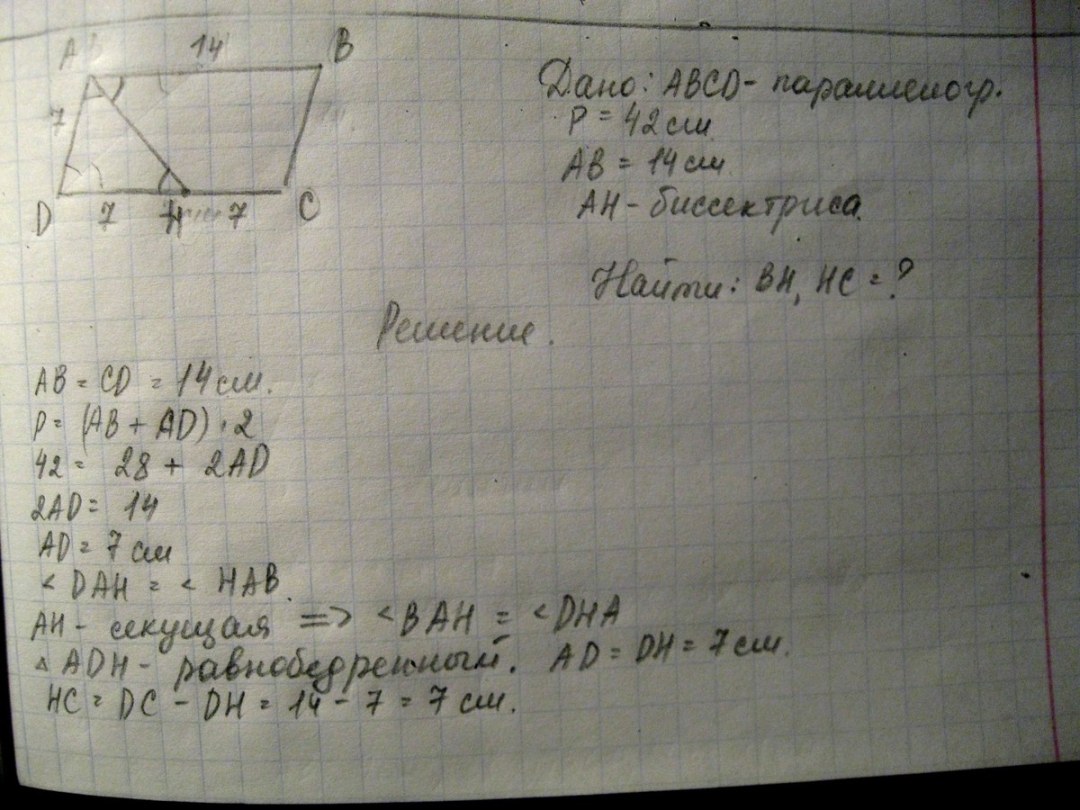 A 14 B
7
D 7 H 7 C
Дано: ABCD - параллелогр.
P = 42 см.
AB = 14 см.
AH - биссектриса.
Найти: BH, HC = ?
Решение.
AB = CD = 14 см.
P = (AB + AD) · 2
42 = 28 + 2AD
2AD = 14
AD = 7 см
< DAH = < HAB.
AH - секущая => < BAH = < DHA
△ ADH - равнобедренный. AD = DH = 7 см.
HC = DC - DH = 14 - 7 = 7 см.